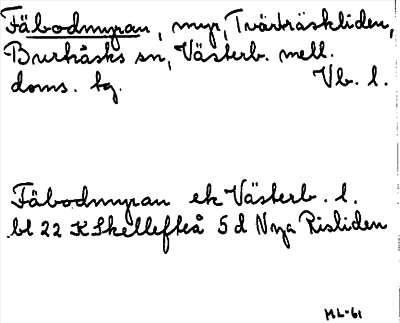 Fäbodmyran, myr, Tvärträskliden,
Burträsks sn, Västerb. mell.
doms. tg. Vb. l.
Fäbodmyran ek Västerb. l.
bl 22 K Skellefteå 5 d Nya Risliden
ML-61